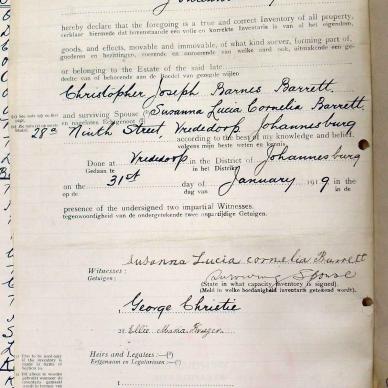 hereby declare that the foregoing is a true and correct Inventory of all property,
verklaar hiermede dat bovenstaande een volle en korrekte Inventaris is van al het eigendom,
goods, and effects, movable and immovable, of what kind soever, forming part of,
goederen en bezittingen, roerende en onroerende van welke aard ook, uitmakende een ge-
or belonging to the Estate of the said late
deelte van of behorende aan de boedel van gezegde wijlen
Christopher Joseph Barnes Barrett
and surviving Spouse Susanna Lucia Cornelia Barrett
en nagelaten Echtgenoot
28a Ninth Street, Vrededorp Johannesburg
according to the best of my knowledge and belief.
volgens mijn beste weten en kennis.
Done at Vrededorp in the District of Johannesburg
Gedaan te in het Distrikt
on the 31st day of January 1919 in the
op de dag van in de
presence of the undersigned two impartial Witnesses.
tegenwoordigheid van de ondergetekende twee onpartijdige Getuigen.
Susanna Lucia Cornelia Barrett
Witnesses: Surviving Spouse
Getuigen: (State in what capacity Inventory is signed).
(Meld in welke hoedanigheid inventaris getekend wordt).
1. George Christie
2. Ellie Maria
Heirs and Legatees:—
Erfgenamen en Legatarissen:—
1.